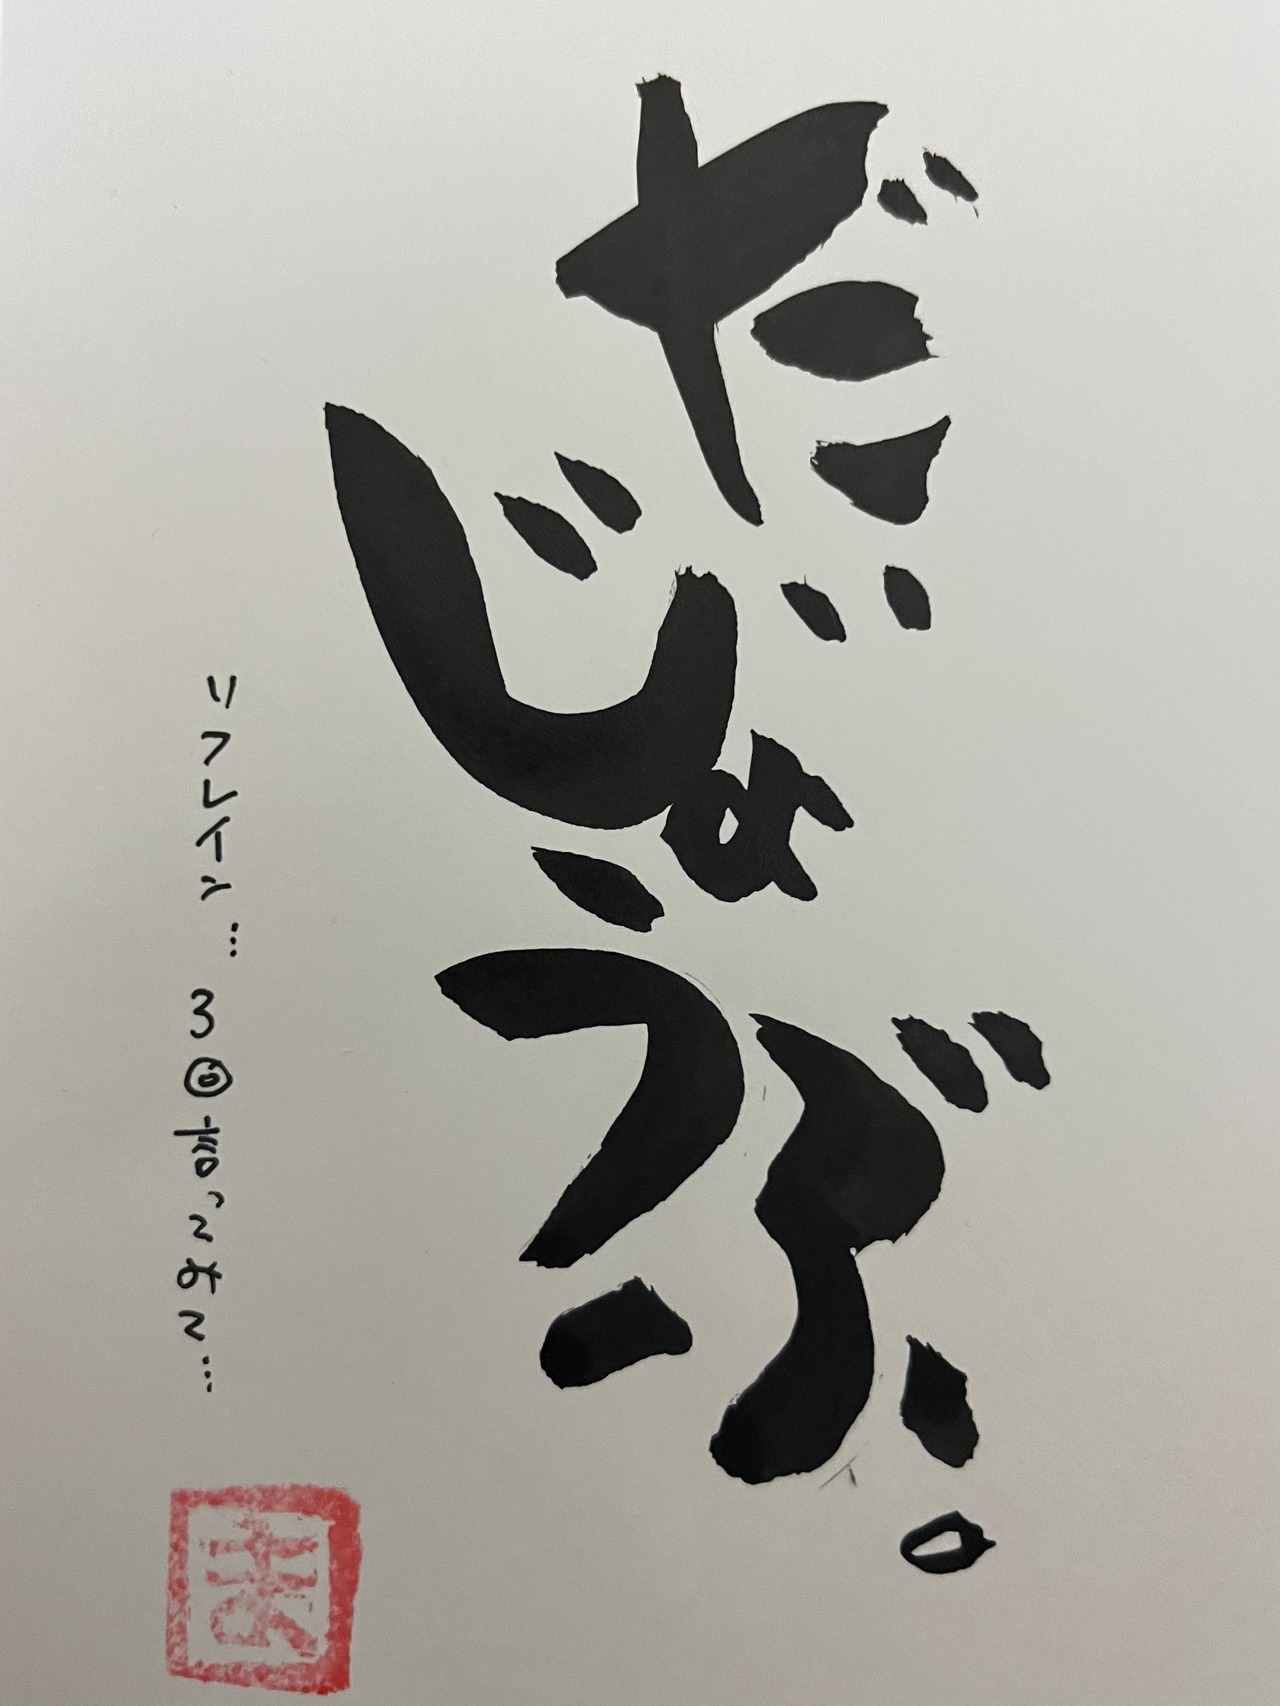 だいじょうぶ。
リフレイン…3回言ってみて…